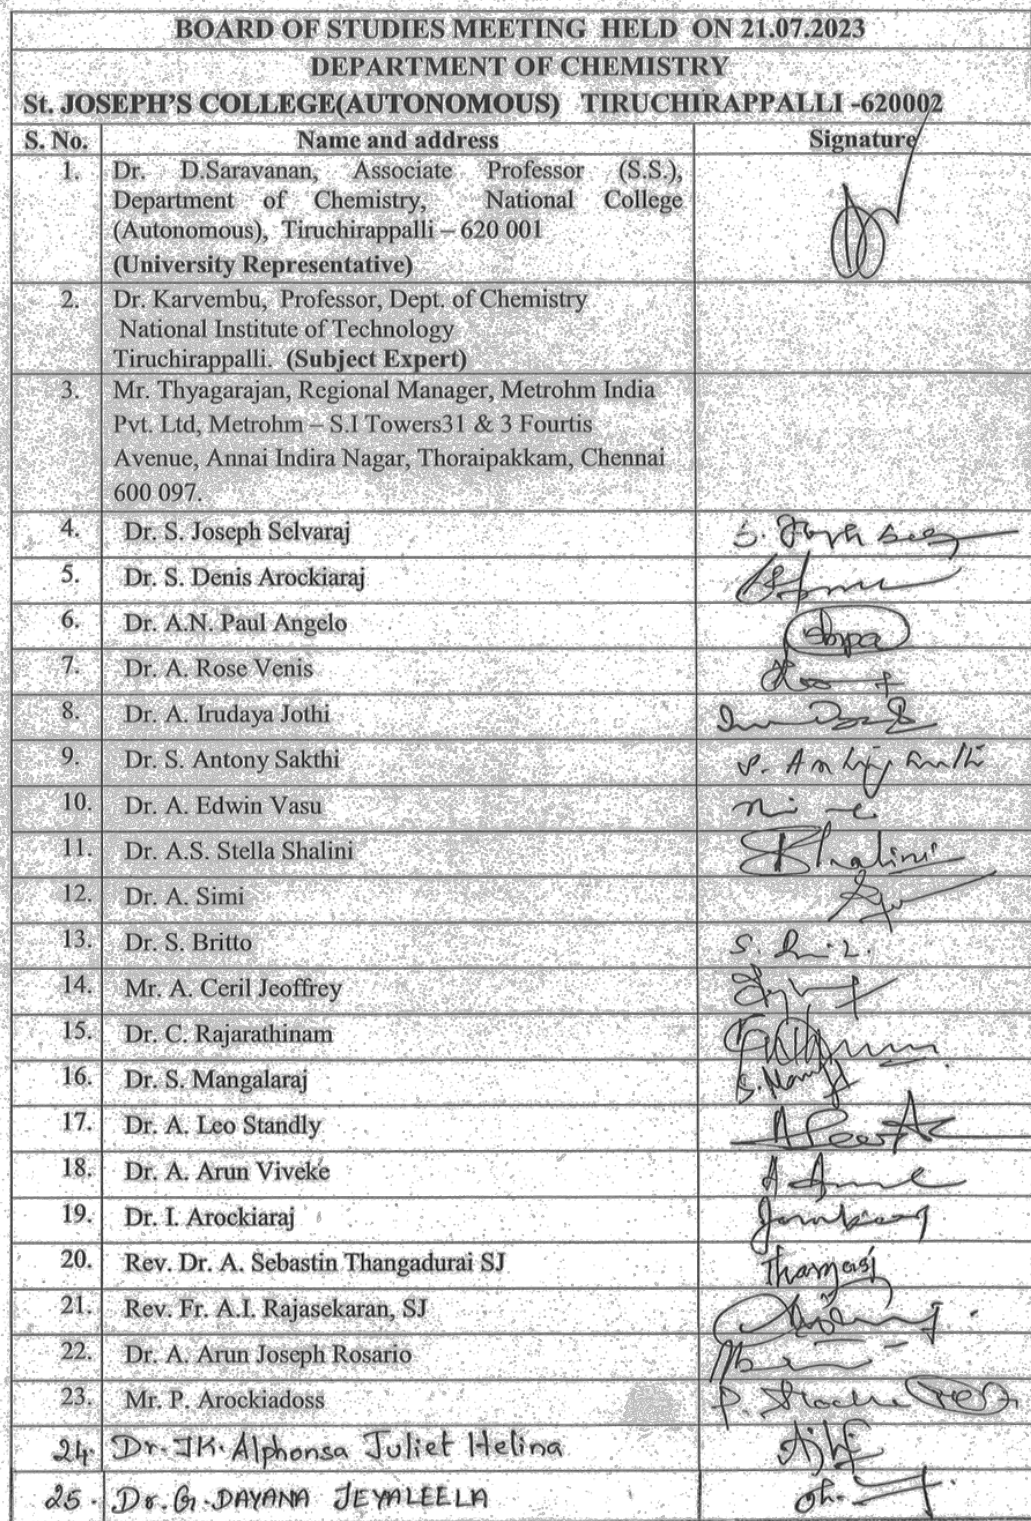 BOARD OF STUDIES MEETING HELD ON 21.07.2023
DEPARTMENT OF CHEMISTRY
St. JOSEPH'S COLLEGE(AUTONOMOUS) TIRUCHIRAPPALLI -620002
S. No. Name and address Signature
1. Dr. D.Saravanan, Associate Professor (S.S.),
Department of Chemistry, National College
(Autonomous), Tiruchirappalli – 620 001
(University Representative)
2. Dr. Karvembu, Professor, Dept. of Chemistry
National Institute of Technology
Tiruchirappalli. (Subject Expert)
3. Mr. Thyagarajan, Regional Manager, Metrohm India
Pvt. Ltd, Metrohm – S.I Towers31 & 3 Fourtis
Avenue, Annai Indira Nagar, Thoraipakkam, Chennai
600 097.
4. Dr. S. Joseph Selvaraj
5. Dr. S. Denis Arockiaraj
6. Dr. A.N. Paul Angelo
7. Dr. A. Rose Venis
8. Dr. A. Irudaya Jothi
9. Dr. S. Antony Sakthi
10. Dr. A. Edwin Vasu
11. Dr. A.S. Stella Shalini
12. Dr. A. Simi
13. Dr. S. Britto
14. Mr. A. Ceril Jeoffrey
15. Dr. C. Rajarathinam
16. Dr. S. Mangalaraj
17. Dr. A. Leo Standly
18. Dr. A. Arun Viveke
19. Dr. I. Arockiaraj
20. Rev. Dr. A. Sebastin Thangadurai SJ
21. Rev. Fr. A.I. Rajasekaran, SJ
22. Dr. A. Arun Joseph Rosario
23. Mr. P. Arockiadoss
24. Dr. JK. Alphonsa Juliet Helina
25. Dr. G. DAYANA JEYALEELA